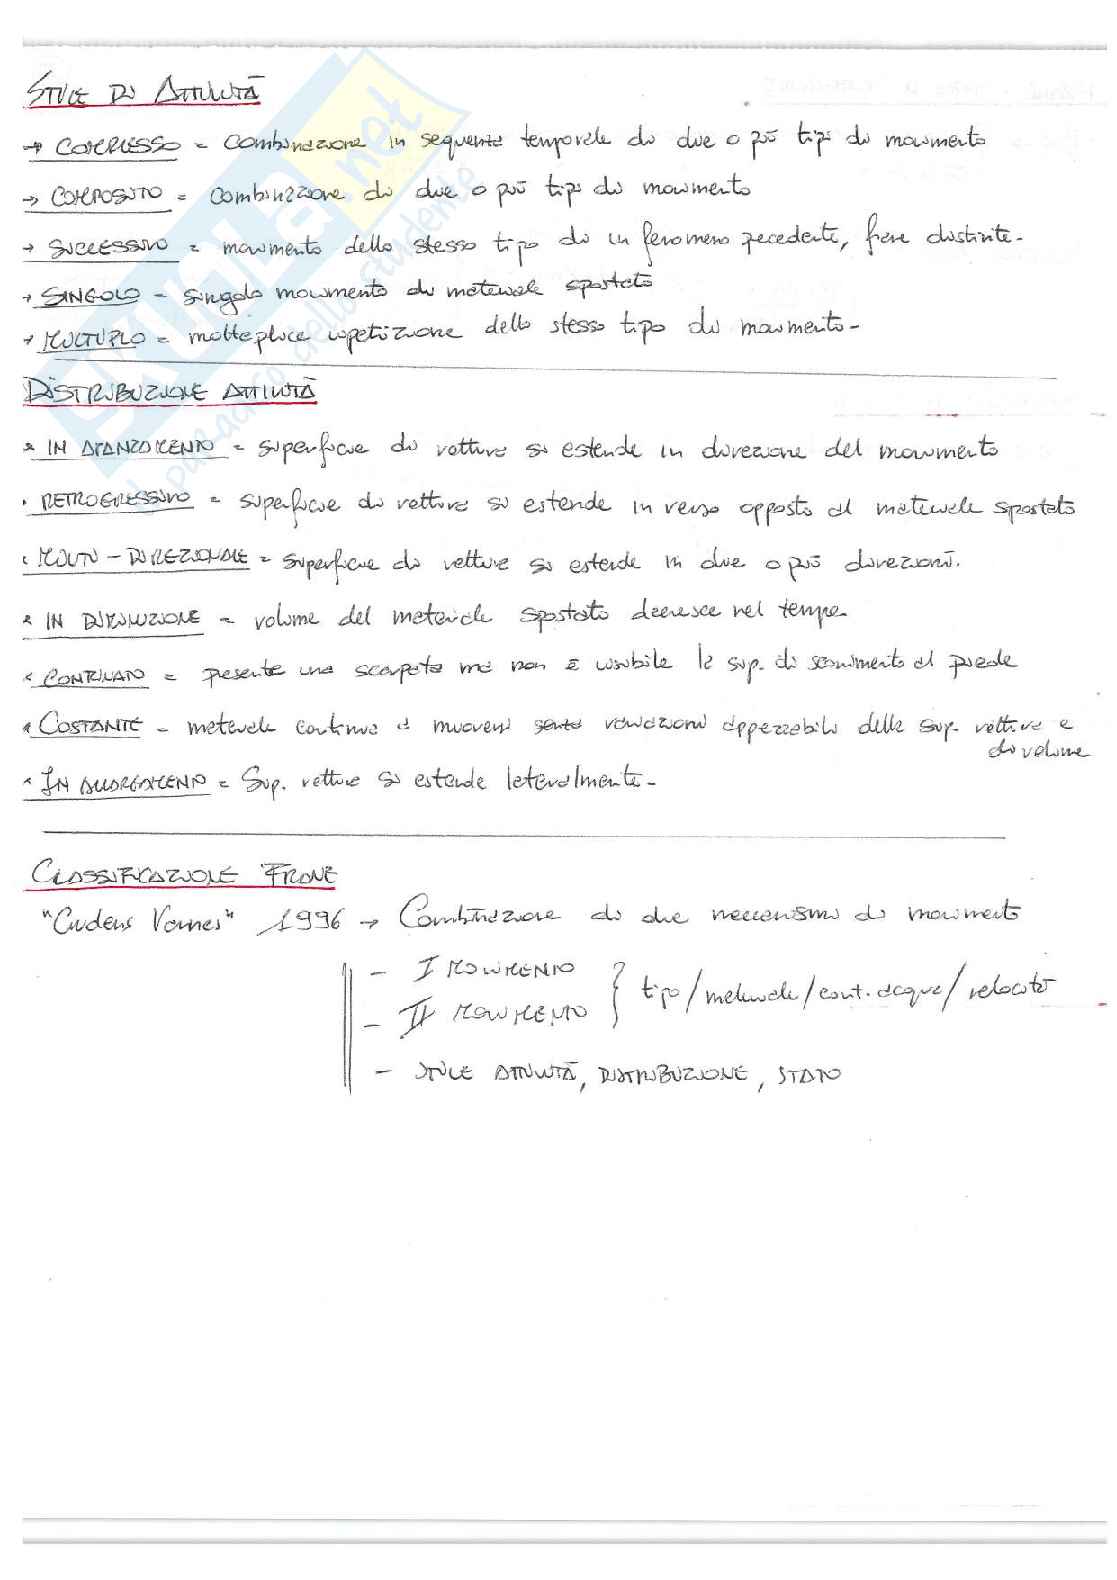 STILE DI ATTIVITÀ
→ COMPLESSO = combinazione in sequenza temporale di due o più tipi di movimento
→ COMPOSITO = combinazione di due o più tipi di movimento
→ SUCCESSIVO = movimento dello stesso tipo di un fenomeno precedente, frane distinte-
→ SINGOLO - singolo movimento di materiale spostato
→ MULTIPLO = molteplice ripetizione dello stesso tipo di movimento-
DISTRIBUZIONE ATTIVITÀ
• IN AVANZAMENTO = superficie di rottura si estende in direzione del movimento
• RETROGRESSIVO = superficie di rottura si estende in verso opposto al materiale spostato
• MULTI-DIREZIONALE = superficie di rottura si estende in due o più direzioni.
• IN DIMINUZIONE = volume del materiale spostato decresce nel tempo-
• CONFINATO = presente una scarpata ma non è visibile la sup. di scorrimento al piede
• COSTANTE - materiale continua a muoversi senza variazioni apprezzabili della sup. rottura e
di volume
• IN ALLARGAMENTO = Sup. rottura si estende lateralmente-
CLASSIFICAZIONE FRANE
"Cruden Varnes" 1996 → Combinazione di due meccanismi di movimento
- I MOVIMENTO
- II MOVIMENTO } tipo/materiale/cont. acqua/velocità
- STILE ATTIVITÀ, DISTRIBUZIONE, STATO
SKUOLA.net
il paradiso dello studente